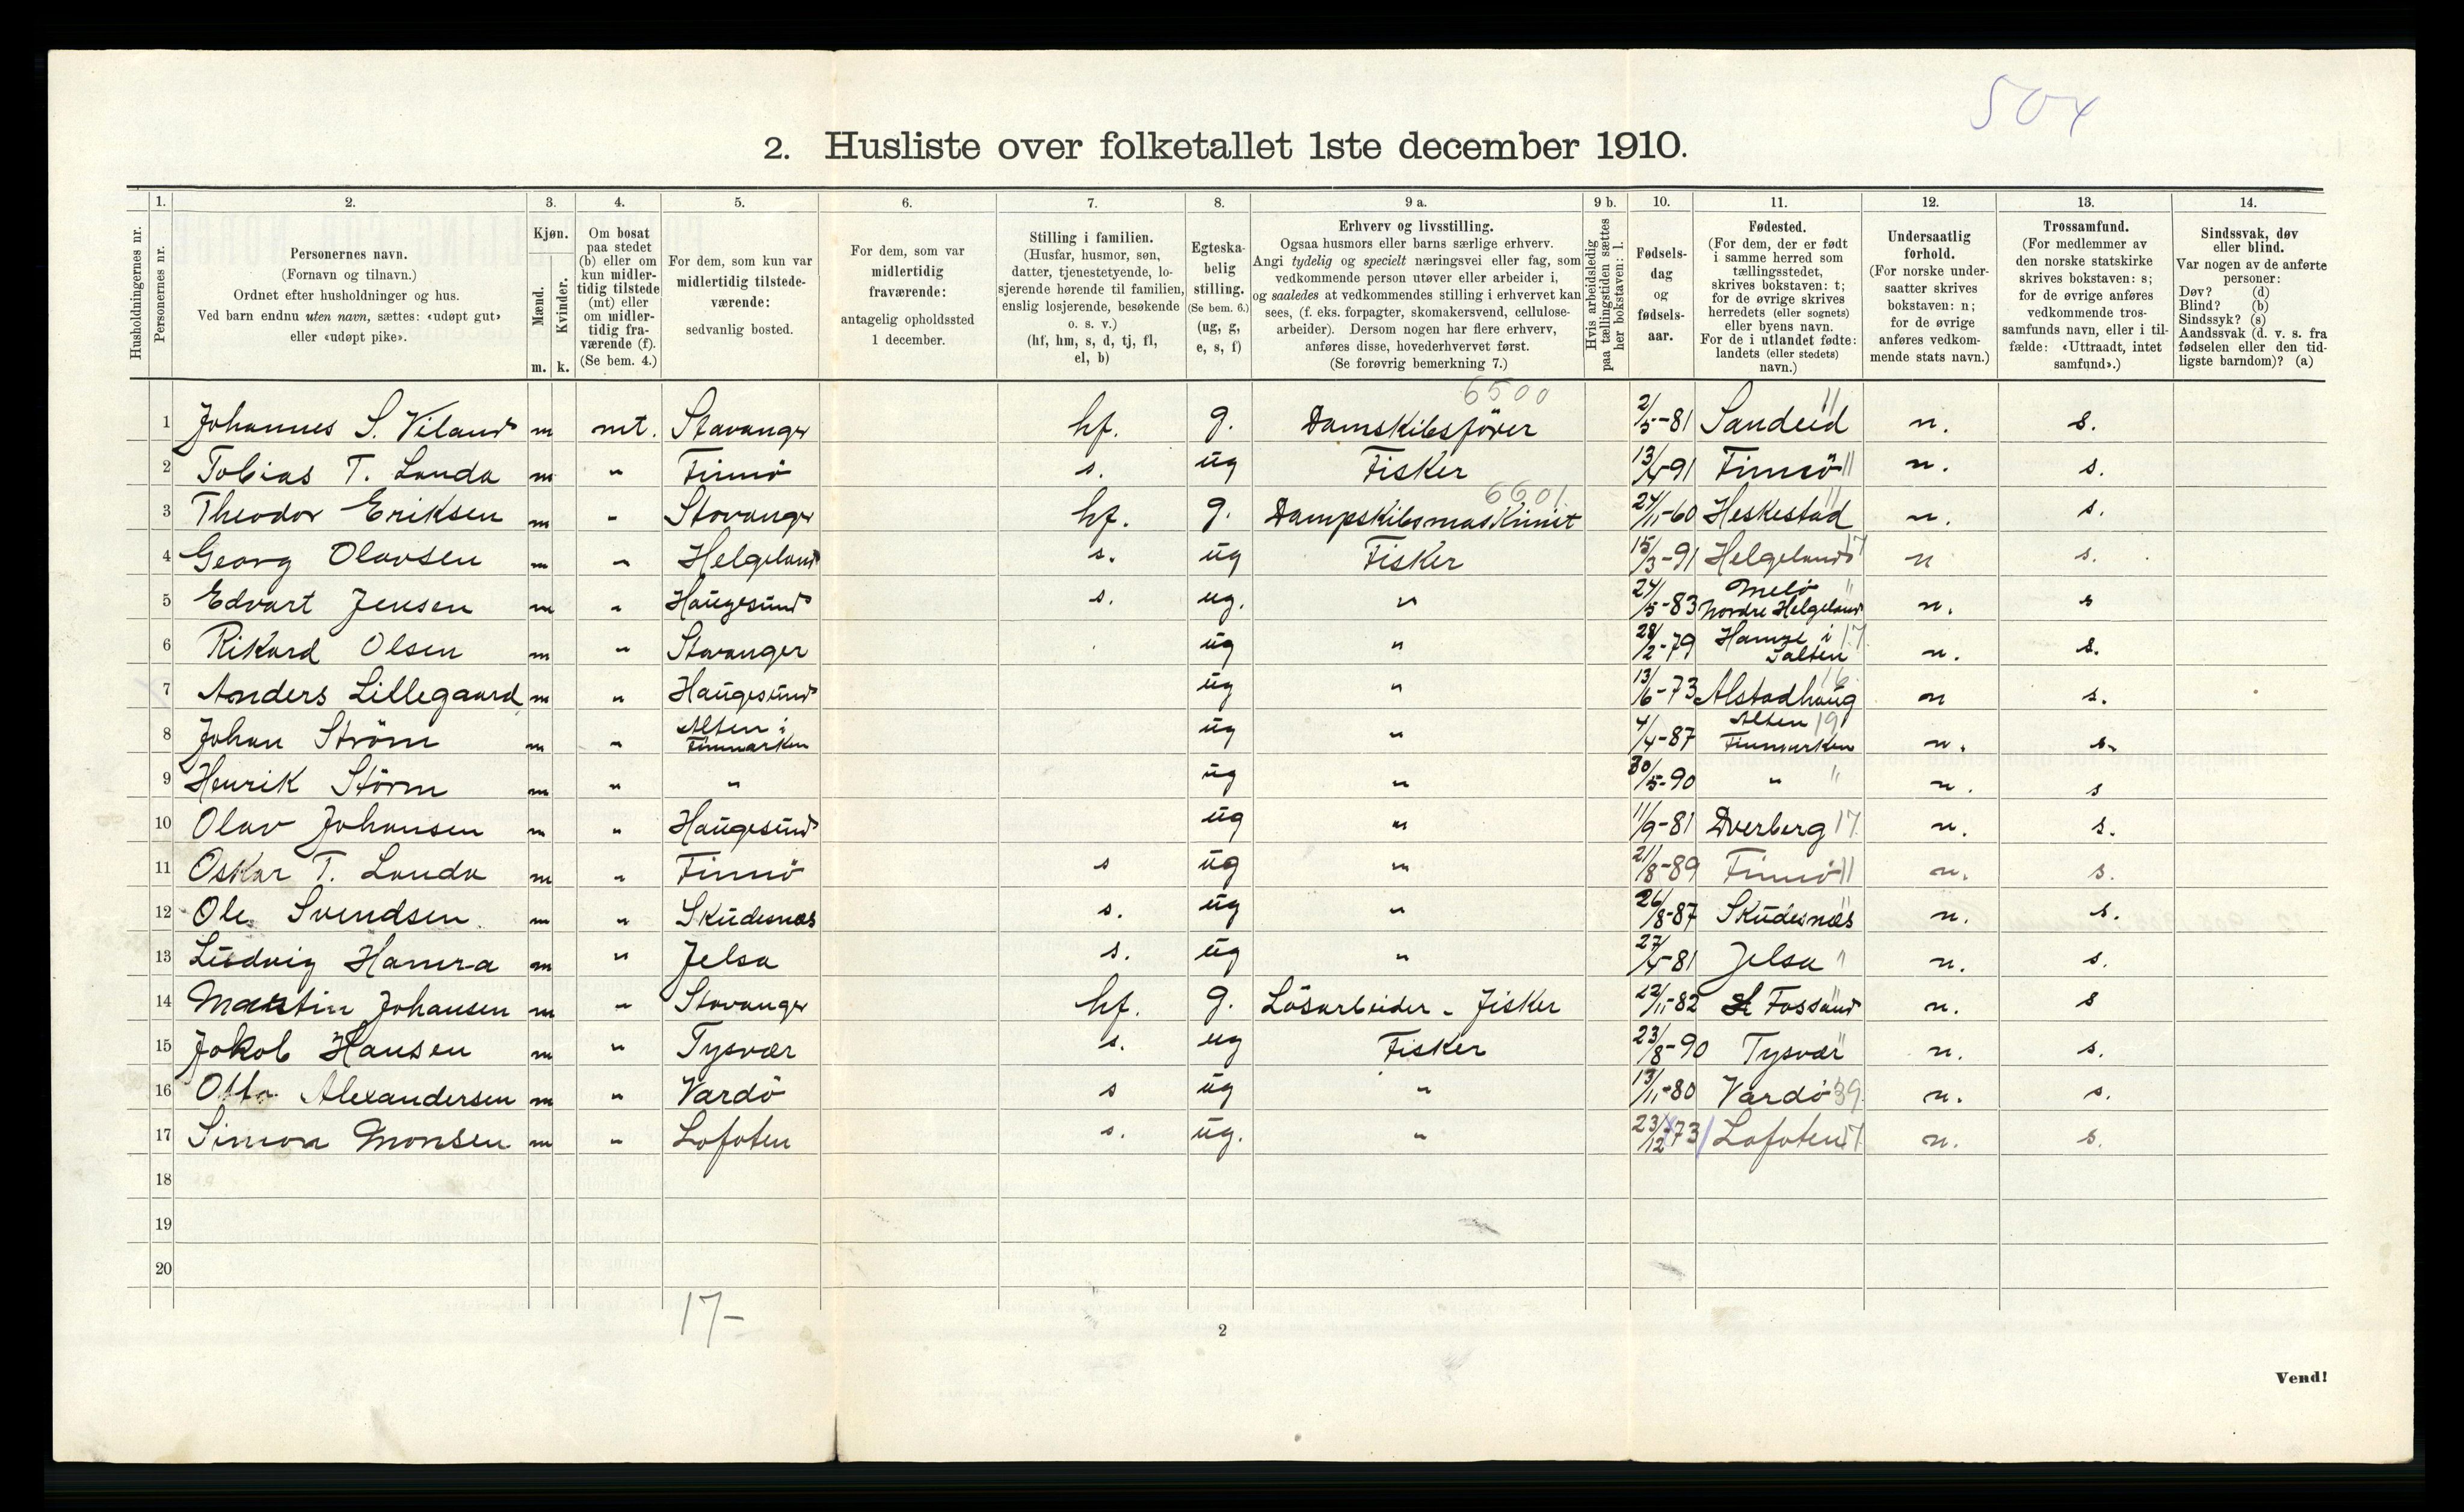 504
2. Husliste over folketallet 1ste december 1910.
Husholdningernes nr.
1. Personernes nr.
2. Personernes navn. (Fornavn og tilnavn.) Ordnet efter husholdninger og hus. Ved barn endnu uten navn, sættes: «udøpt gut» eller «udøpt pike».
3. Kjøn. Mænd. m. Kvinder. k.
4. Om bosat paa stedet (b) eller om kun midlertidig tilstede (mt) eller om midlertidig fraværende (f). (Se bem. 4.)
5. For dem, som kun var midlertidig tilstedeværende: sedvanlig bosted.
6. For dem, som var midlertidig fraværende: antagelig opholdssted 1 december.
7. Stilling i familien. (Husfar, husmor, søn, datter, tjenestetyende, losjerende hørende til familien, enslig losjerende, besøkende o. s. v.) (hf, hm, s, d, tj, fl, el, b)
8. Egteskabelig stilling. (Se bem. 6.) (ug, g, e, s, f)
9 a. Erhverv og livsstilling. Ogsaa husmors eller barns særlige erhverv. Angi tydelig og specielt næringsvei eller fag, som vedkommende person utøver eller arbeider i, og saaledes at vedkommendes stilling i erhvervet kan sees, (f. eks. forpagter, skomakersvend, cellulosearbeider). Dersom nogen har flere erhverv, anføres disse, hovederhvervet først. (Se forøvrig bemerkning 7.)
9 b. Hvis arbeidsledig paa tællingstiden sættes her bokstaven: l.
10. Fødselsdag og fødselsaar.
11. Fødested. (For dem, der er født i samme herred som tællingsstedet, skrives bokstaven: t; for de øvrige skrives herredets (eller sognets) eller byens navn. For de i utlandet fødte: landets (eller stedets) navn.)
12. Undersaatlig forhold. (For norske undersaatter skrives bokstaven: n; for de øvrige anføres vedkommende stats navn.)
13. Trossamfund. (For medlemmer av den norske statskirke skrives bokstaven: s; for de øvrige anføres vedkommende trossamfunds navn, eller i tilfælde: «Uttraadt, intet samfund».)
14. Sindssvak, døv eller blind. Var nogen av de anførte personer: Døv? (d) Blind? (b) Sindssyk? (s) Aandssvak (d. v. s. fra fødselen eller den tidligste barndom)? (a)
1 Johannes S. Viland m mt. Stavanger hf. g. Damskibsförer 6500 2/5-81 Sandeid 11 n. s.
2 Tobias T. Landa m " Finnö s. ug Fisker 13/4-91 Finnö 11 n. s.
3 Theodor Eriksen m " Stavanger hf. g. Dampskibsmaskinist 6601 24/11-60 Heskestad 11 n. s.
4 Georg Olavsen m " Helgeland s. ug Fisker 15/3-91 Helgeland 17 n s.
5 Edvart Jensen m " Haugesund s. ug. " 24/5-83 Melö Nordre Helgeland " n. s
6 Rikard Olsen m " Stavanger ug " 28/2-79 i Salten 17 n. s.
7 Anders Lillegaard m " Haugesund ug " 13/6-73 Alstadhaug 16 n s.
8 Johan Ström m " Alten i Finmarken ug " 4/4-87 Alten 19 Finmarken n. s.
9 Henrik Störm m " " ug " 30/5-90 " " n. s
10 Olav Johansen m " Haugesund ug " 11/9-81 Dverberg 17 n. s.
11 Oskar T. Landa m " Finnö s ug " 21/8-89 Finnö 11 n. s.
12 Ole Svendsen m " Skudesnæs s. ug " 26/8-87 Skudesnæs " n. s.
13 Ludvig Hamra m " Jelsa s. ug " 27/4-81 Jelsa " n. s.
14 Martin Johansen m " Stavanger hf. g. Lösarbeider - fisker 22/11-82 Fossand " n. s
15 Jakob Hansen m " Tysvær s. ug Fisker 23/8-90 Tysvær " n. s.
16 Otto Alexandersen m " Vardö s ug " 13/11-80 Vardö 39 n. s.
17 Simon Monsen m " Lofoten s. ug. " 23/12-73 Lofoten 17 n. s.
18
19
20
17-
2
Vend!